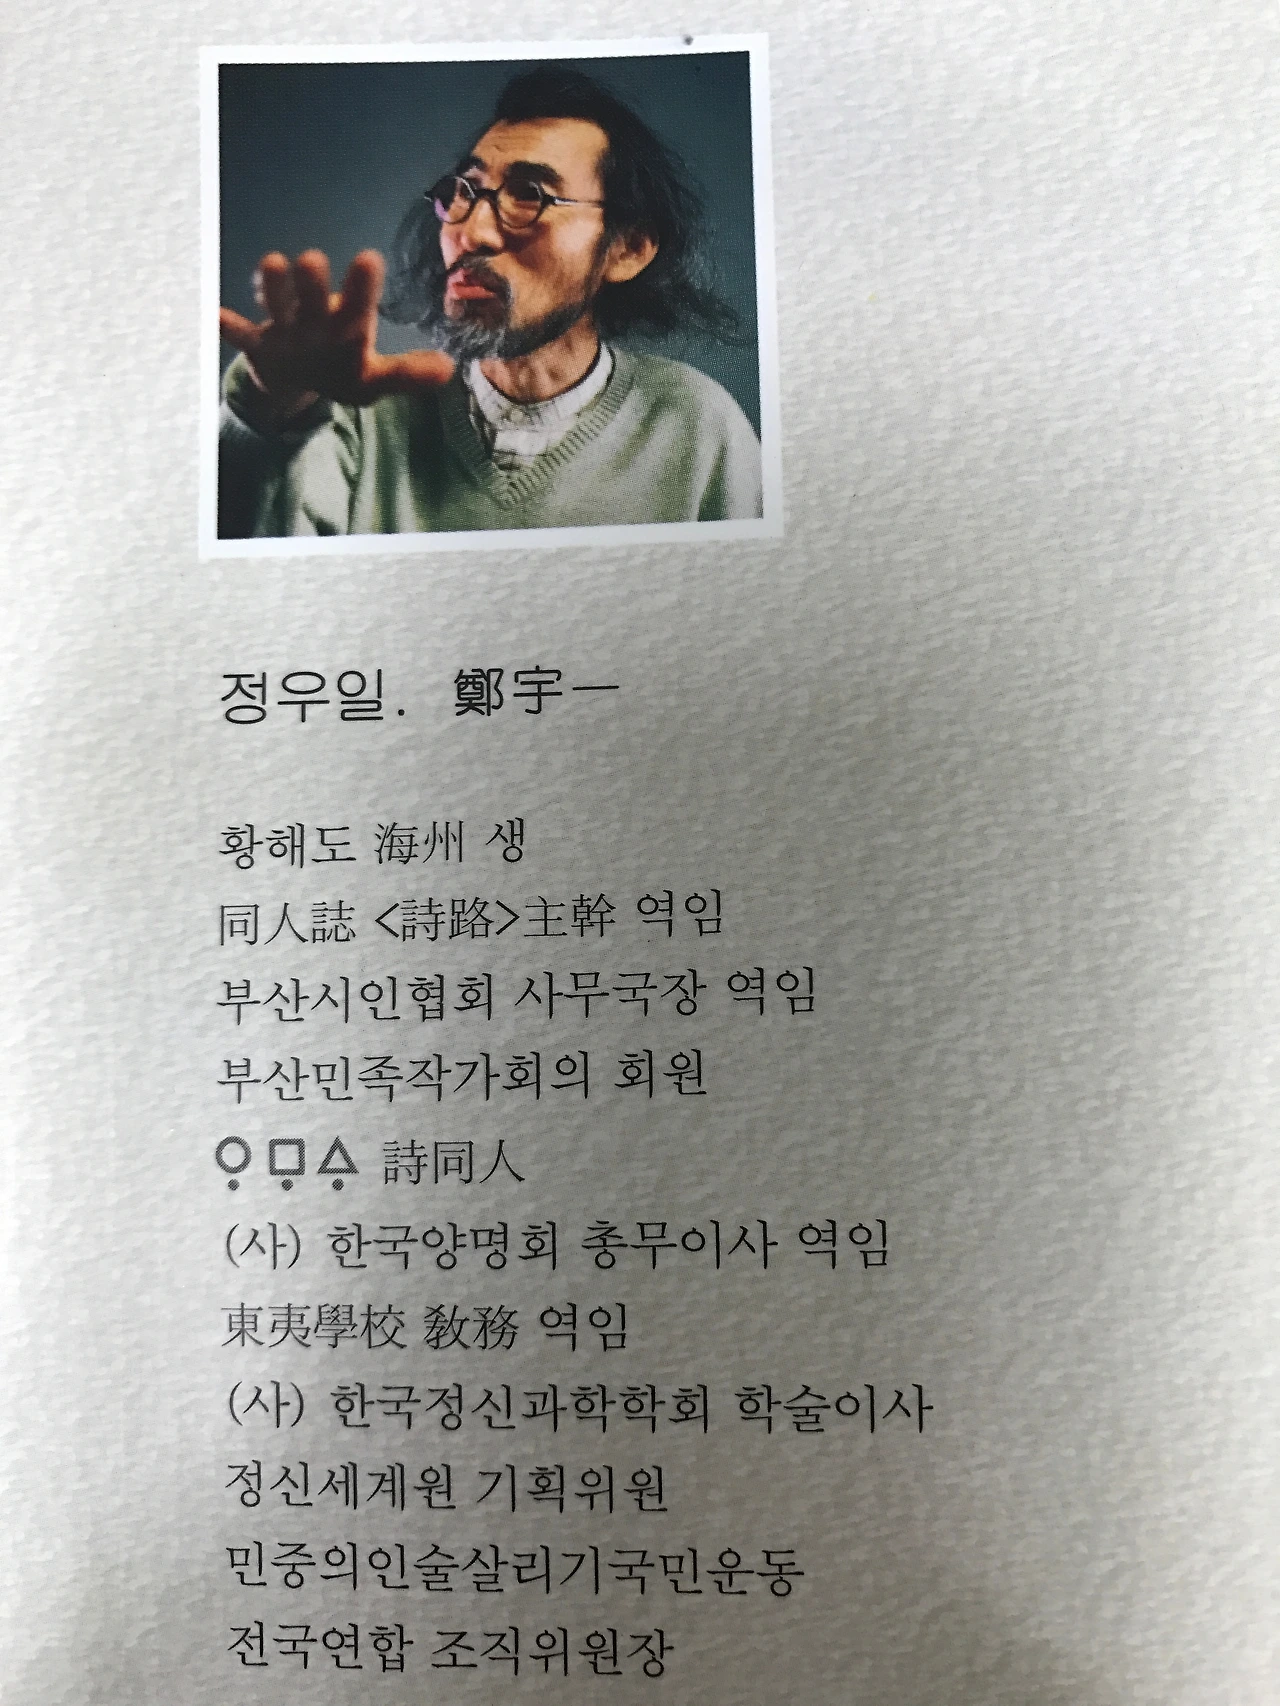 정우일. 鄭宇一
황해도 海州 생
同人誌 <詩路>主幹 역임
부산시인협회 사무국장 역임
부산민족작가회의 회원
詩同人
(사) 한국양명회 총무이사 역임
東夷學校 敎務 역임
(사) 한국정신과학학회 학술이사
정신세계원 기획위원
민중의인술살리기국민운동
전국연합 조직위원장